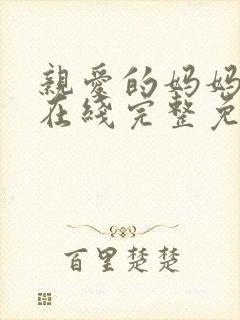 親愛的妈妈
在綫完整免
百里楚楚